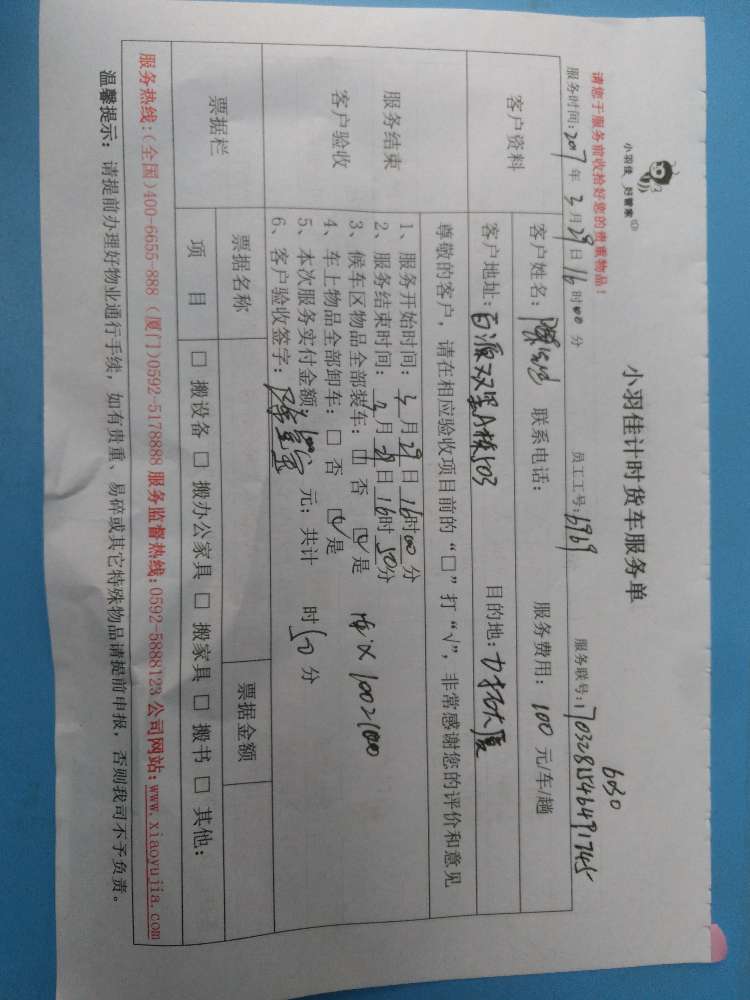 小羽佳 好管家
小羽佳计时货车服务单
请您于服务前收拾好您的贵重物品！
6030
服务时间：2017年3月29日16时00分 员工工号：6969 服务联号：
客户资料
客户姓名： 联系电话： 服务费用：100元/车/趟
客户地址： 目的地：
尊敬的客户，请在相应验收项目前的“□”打“√”，非常感谢您的评价和意见
服务结束
客户验收
1、服务开始时间：3月29日16时00分
2、服务结束时间：3月29日16时50分
3、候车区物品全部装车：□否 ☑是
4、车上物品全部卸车：□否 ☑是
5、本次服务实付金额：100元；共计 时50分
6、客户验收签字：
1002100
票据栏
票据名称 票据金额
项目 □搬设备 □搬办公家具 □搬家具 □搬书 □其他：
服务热线：(全国)400-6655-888 (厦门)0592-5178888 服务监督热线：0592-5888123 公司网站：www.xiaoyujia.com
温馨提示：请提前办理好物业通行手续，如有贵重、易碎或其它特殊物品请提前申报，否则我司不予负责。